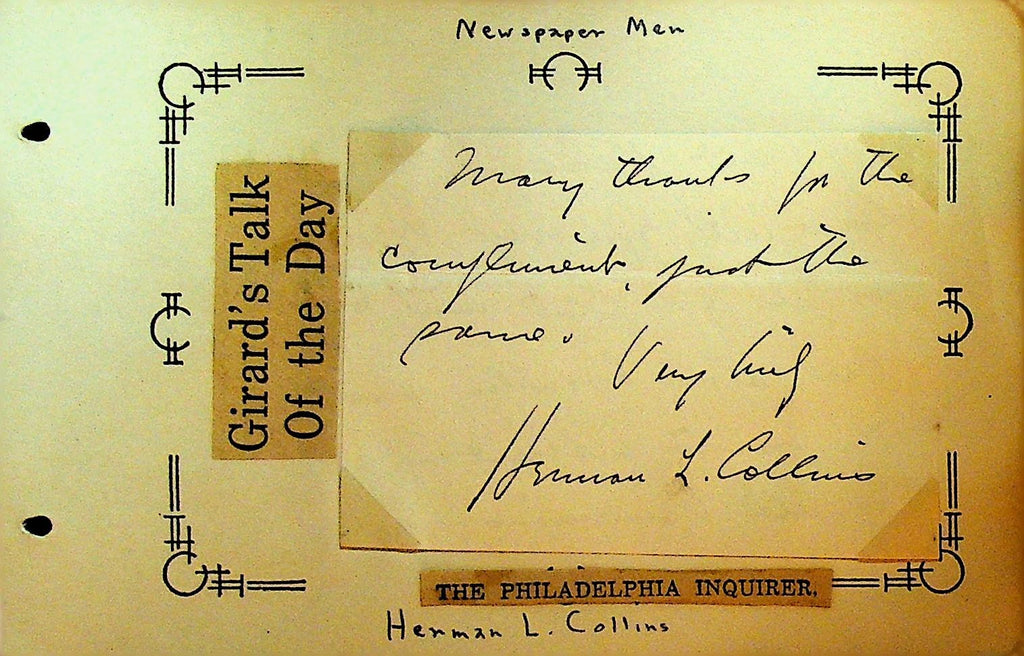 Newspaper Men
Girard's Talk
Of the Day
Many thanks for the
compliment, just the
same. Very truly
Herman L. Collins
THE PHILADELPHIA INQUIRER.
Herman L. Collins